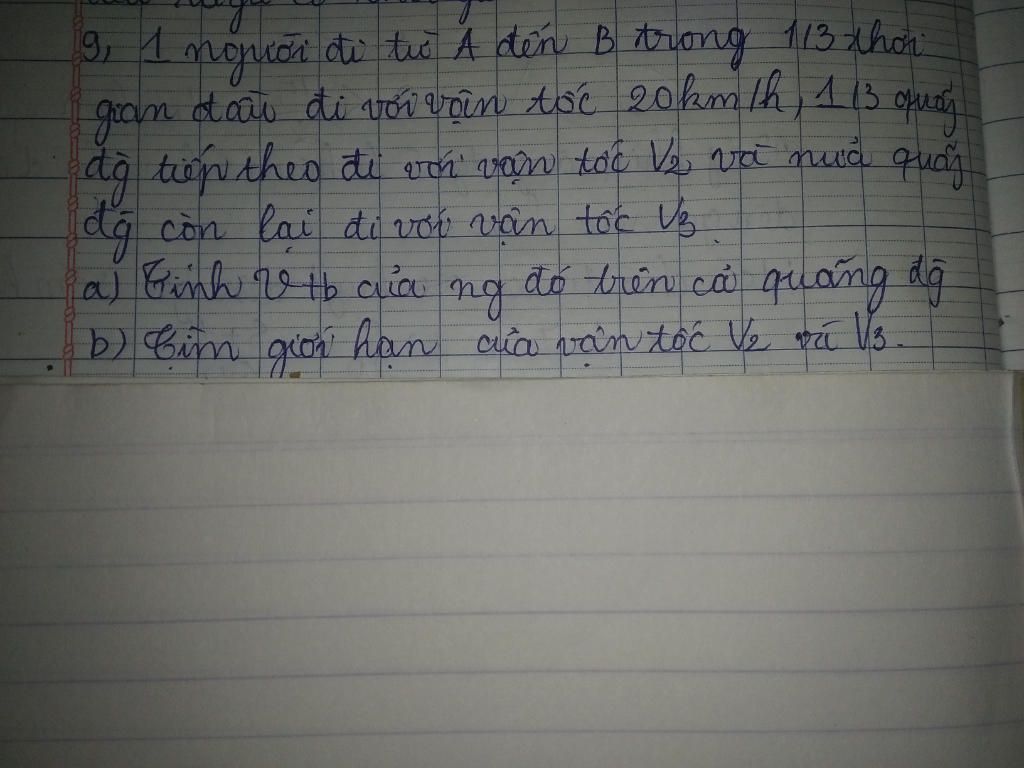 9, 1 người đi từ A đến B trong 1/3 thời
gian đầu đi với vận tốc 20km/h, 1/3 quãng
đg̃ tiếp theo đi với vận tốc V2 và nửa quãng
đg̃ còn lại đi với vận tốc V3.
a) Tính Vtb của ng đó trên cả quãng đg̃
b) Tìm giới hạn của vận tốc V2 và V3.